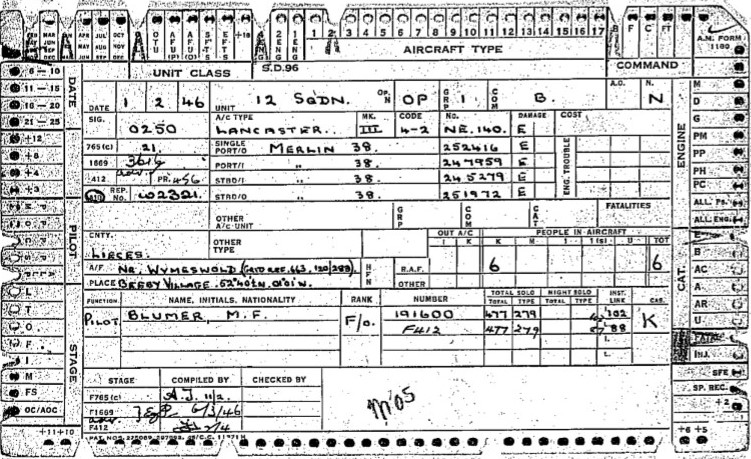 JAN FEB MAR APR JUL OCT
MAY AUG NOV
JUN SEP DEC
OTU AFU (P) AFU (O) SFTS EFTS +10 2 ENG 1 ENG 1 2 3 4 5 6 7 8 9 10 11 12 13 14 15 16 17 B F C FT A.M. FORM 1180
AIRCRAFT TYPE
UNIT CLASS S.D.96 COMMAND
6 – 10
11 – 15
16 – 20
21 – 25
DATE
DATE 1 2 46 UNIT 12 SQDN. OP.N OP GRP 1 COM B. A.O. N. N
SIG. 0250 A/C TYPE LANCASTER. MK. III CODE 4-2 NO. NE.140. DAMAGE E COST
765 (c) 21. SINGLE PORT/O MERLIN 38. 252416 E
1669 PORT/I " 38. 247959 E ENG. TROUBLE
412 PR. 456 STBD/I " 38. 245279 E
REP. NO. STBD/O " 38. 251972 E
OTHER A/C-UNIT GRP COM CAT FATALITIES
CNTY. LIECES. OTHER TYPE OUT A/C PEOPLE IN AIRCRAFT
I K K M I I (s) U TOT
A/F NR. WYMESWOLD (GRID REF. 663, 120/288) HFN R.A.F. 6 6
PLACE BEEBY VILLAGE. 52°40'N. 01°01'W. OTHER
FUNCTION NAME, INITIALS, NATIONALITY RANK NUMBER TOTAL SOLO NIGHT SOLO INST. LINK CAS.
TOTAL TYPE TOTAL TYPE
PILOT. BLUMER, M.F. F/O. 191600 477 279 102 K
F412 477 279 88
STAGE COMPILED BY CHECKED BY
F765 (c) A.J. 11/2.
F1669 6/3/46
F412 2/4
M'05
+12
+8
+4
+3
PILOT
STAGE
L
T
O
F
I
M
FS
OC/AOC
+11 +10
ENGINE
M
D
G
PM
PP
PH
PC
ALL Ps.
ALL ENG.
E
CAT.
B
AC
A
AR
U
FATAL
INJ.
SFE
SP. REC.
+2
+6 +5